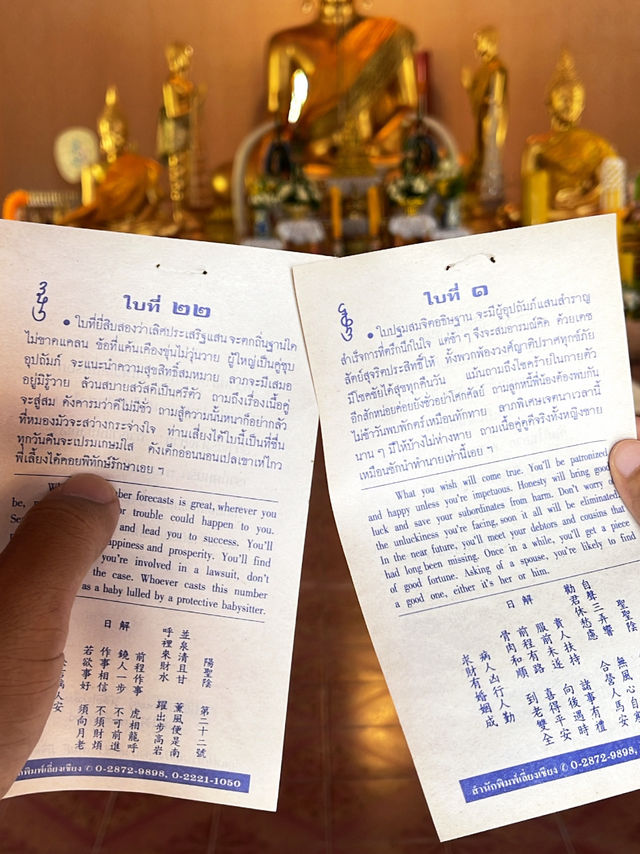 ใบที่ ๒๒
• ใบที่ยี่สิบสองว่าเลิศประเสริฐแสน จะตกถิ่นฐานใด
ไม่ขาดแคลน ข้อที่แค้นเคืองขุ่นไม่วุ่นวาย ผู้ใหญ่เป็นคู่ชุบ
อุปถัมภ์ จะแนะนำความสุขสิทธิ์สมหมาย ลาภจะมีเสมอ
อยู่มิรู้วาย ล้วนสบายสวัสดีเป็นศรีตัว ถามถึงเรื่องเนื้อคู่
จะสู่สม ดังคารมว่าดีไม่มีชั่ว ถามสู้ความนั้นหนาก็อย่ากลัว
ที่หมองมัวจะสว่างกระจ่างใจ ท่านเสี่ยงได้ใบนี้เป็นที่ชื่น
ทุกวันคืนจะเปรมเกษมใส ดังเด็กอ่อนนอนเปลเขาเห่ไกว
พี่เลี้ยงได้คอยพิทักษ์รักษาเอย ฯ
forecasts is great, wherever you
be, or trouble could happen to you.
and lead you to success. You'll
happiness and prosperity. You'll find
you're involved in a lawsuit, don't
the case. Whoever casts this number
as a baby lulled by a protective babysitter.
陽聖陰 第二十二號
並泉清且甘 薰風便是南
呼裡來財水 躍出步高岩
解日
前程作事 虎相龍呼
鐃人一步 不可前進
作事相信 不須財煩
若欲事好 須向月老
สำนักพิมพ์เลี่ยงเซียง ✆ 0-2872-9898, 0-2221-1050
ใบที่ ๑
• ใบปฐมสมจิตอธิษฐาน จะมีผู้อุปถัมภ์แสนสำราญ
สำเร็จการที่ตรึกนึกในใจ แต่ช้า ๆ จึงจะสมอารมณ์คิด ด้วยเดช
สัตย์สุจริตประสิทธิ์ให้ ทั้งพวกพ้องวงศ์ญาติปราศทุกข์ภัย
มีโชคชัยได้สุขทุกคืนวัน แม้นถามถึงโชคร้ายในกายตัว
อีกสักหน่อยค่อยยังชั่วอย่าโศกศัลย์ ถามลูกหนี้พี่น้องต้องพบกัน
ไม่ช้าวันพบพักตร์เหมือนทักทาย ลาภพิเศษเจตนาเวลานี้
นาน ๆ มีให้บ้างไม่ห่างหาย ถามเนื้อคู่ดูดีจริงทั้งหญิงชาย
เหมือนชักนำทำนายเท่านี้เอย ฯ
What you wish will come true. You'll be patronized
and happy unless you're impetuous. Honesty will bring good
luck and save your subordinates from harm. Don't worry
the unluckiness you're facing, soon it all will be eliminated.
In the near future, you'll meet your debtors and cousins that
had long been missing. Once in a while, you'll get a piece
of good fortune. Asking of a spouse, you're likely to find
a good one, either it's her or him.
聖聖陰
自聲三弄響 無風心自
勸君休愁慮 合營人馬安
解日
貴人扶持 諸事有禮
服前未近 向後遇時
前程有路 喜得平安
骨肉和順 到老雙全
病人凶行人動
求財有婚姻成
สำนักพิมพ์เลี่ยงเซียง ✆ 0-2872-9898,